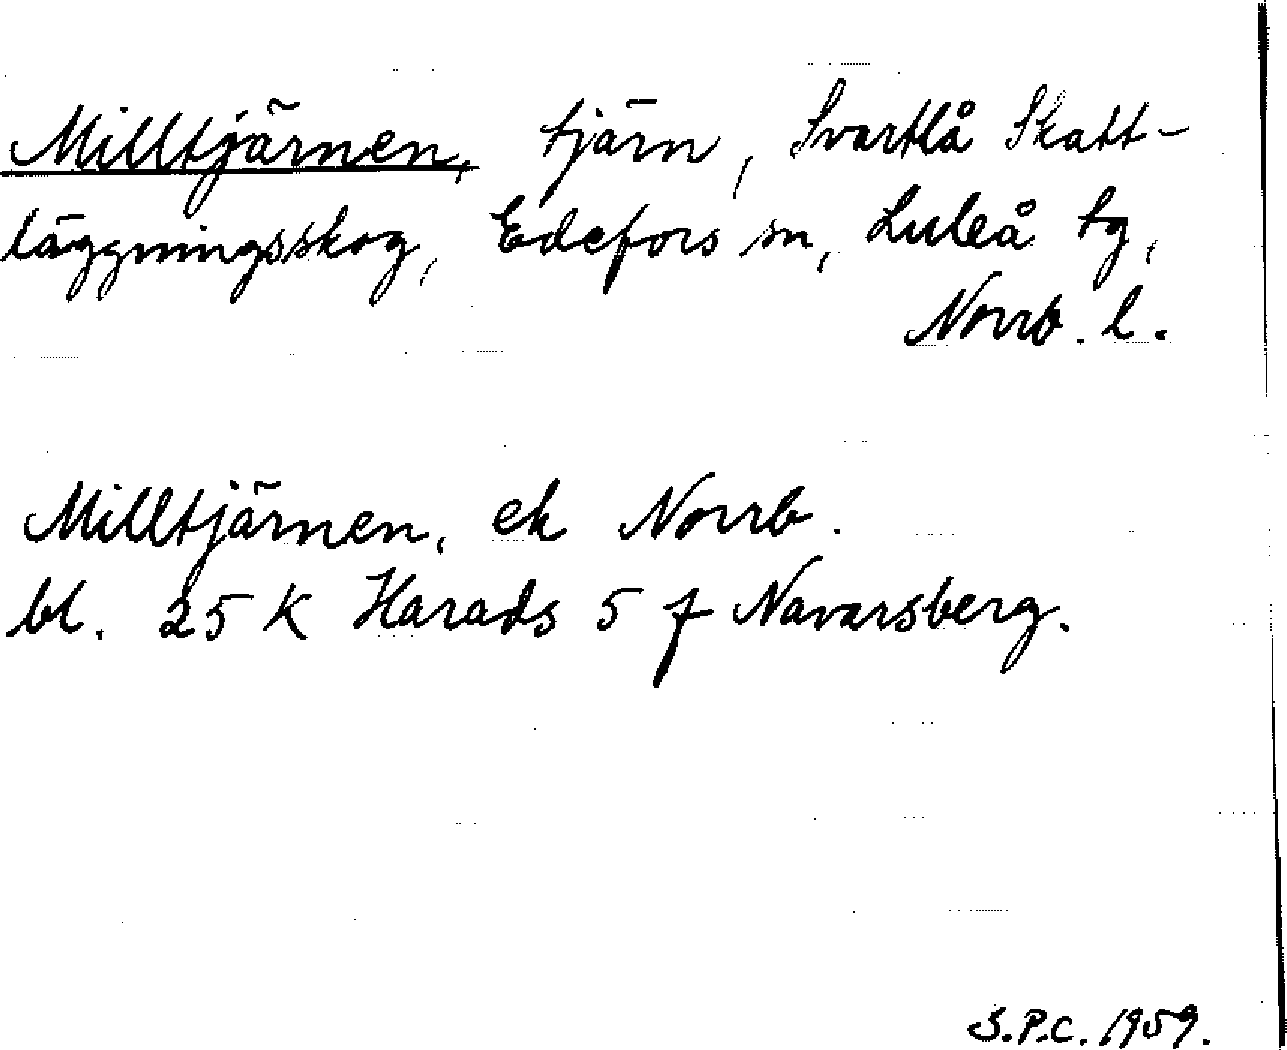 Milltjärnen, tjärn, Svartlå Skatt-
läggningsskog, Edefors sn, Luleå tg,
Norrb. l.
Milltjärnen, ek Norrb.
bl. 25 K Harads 5 f Navarsberg.
S.P.C. 1959.